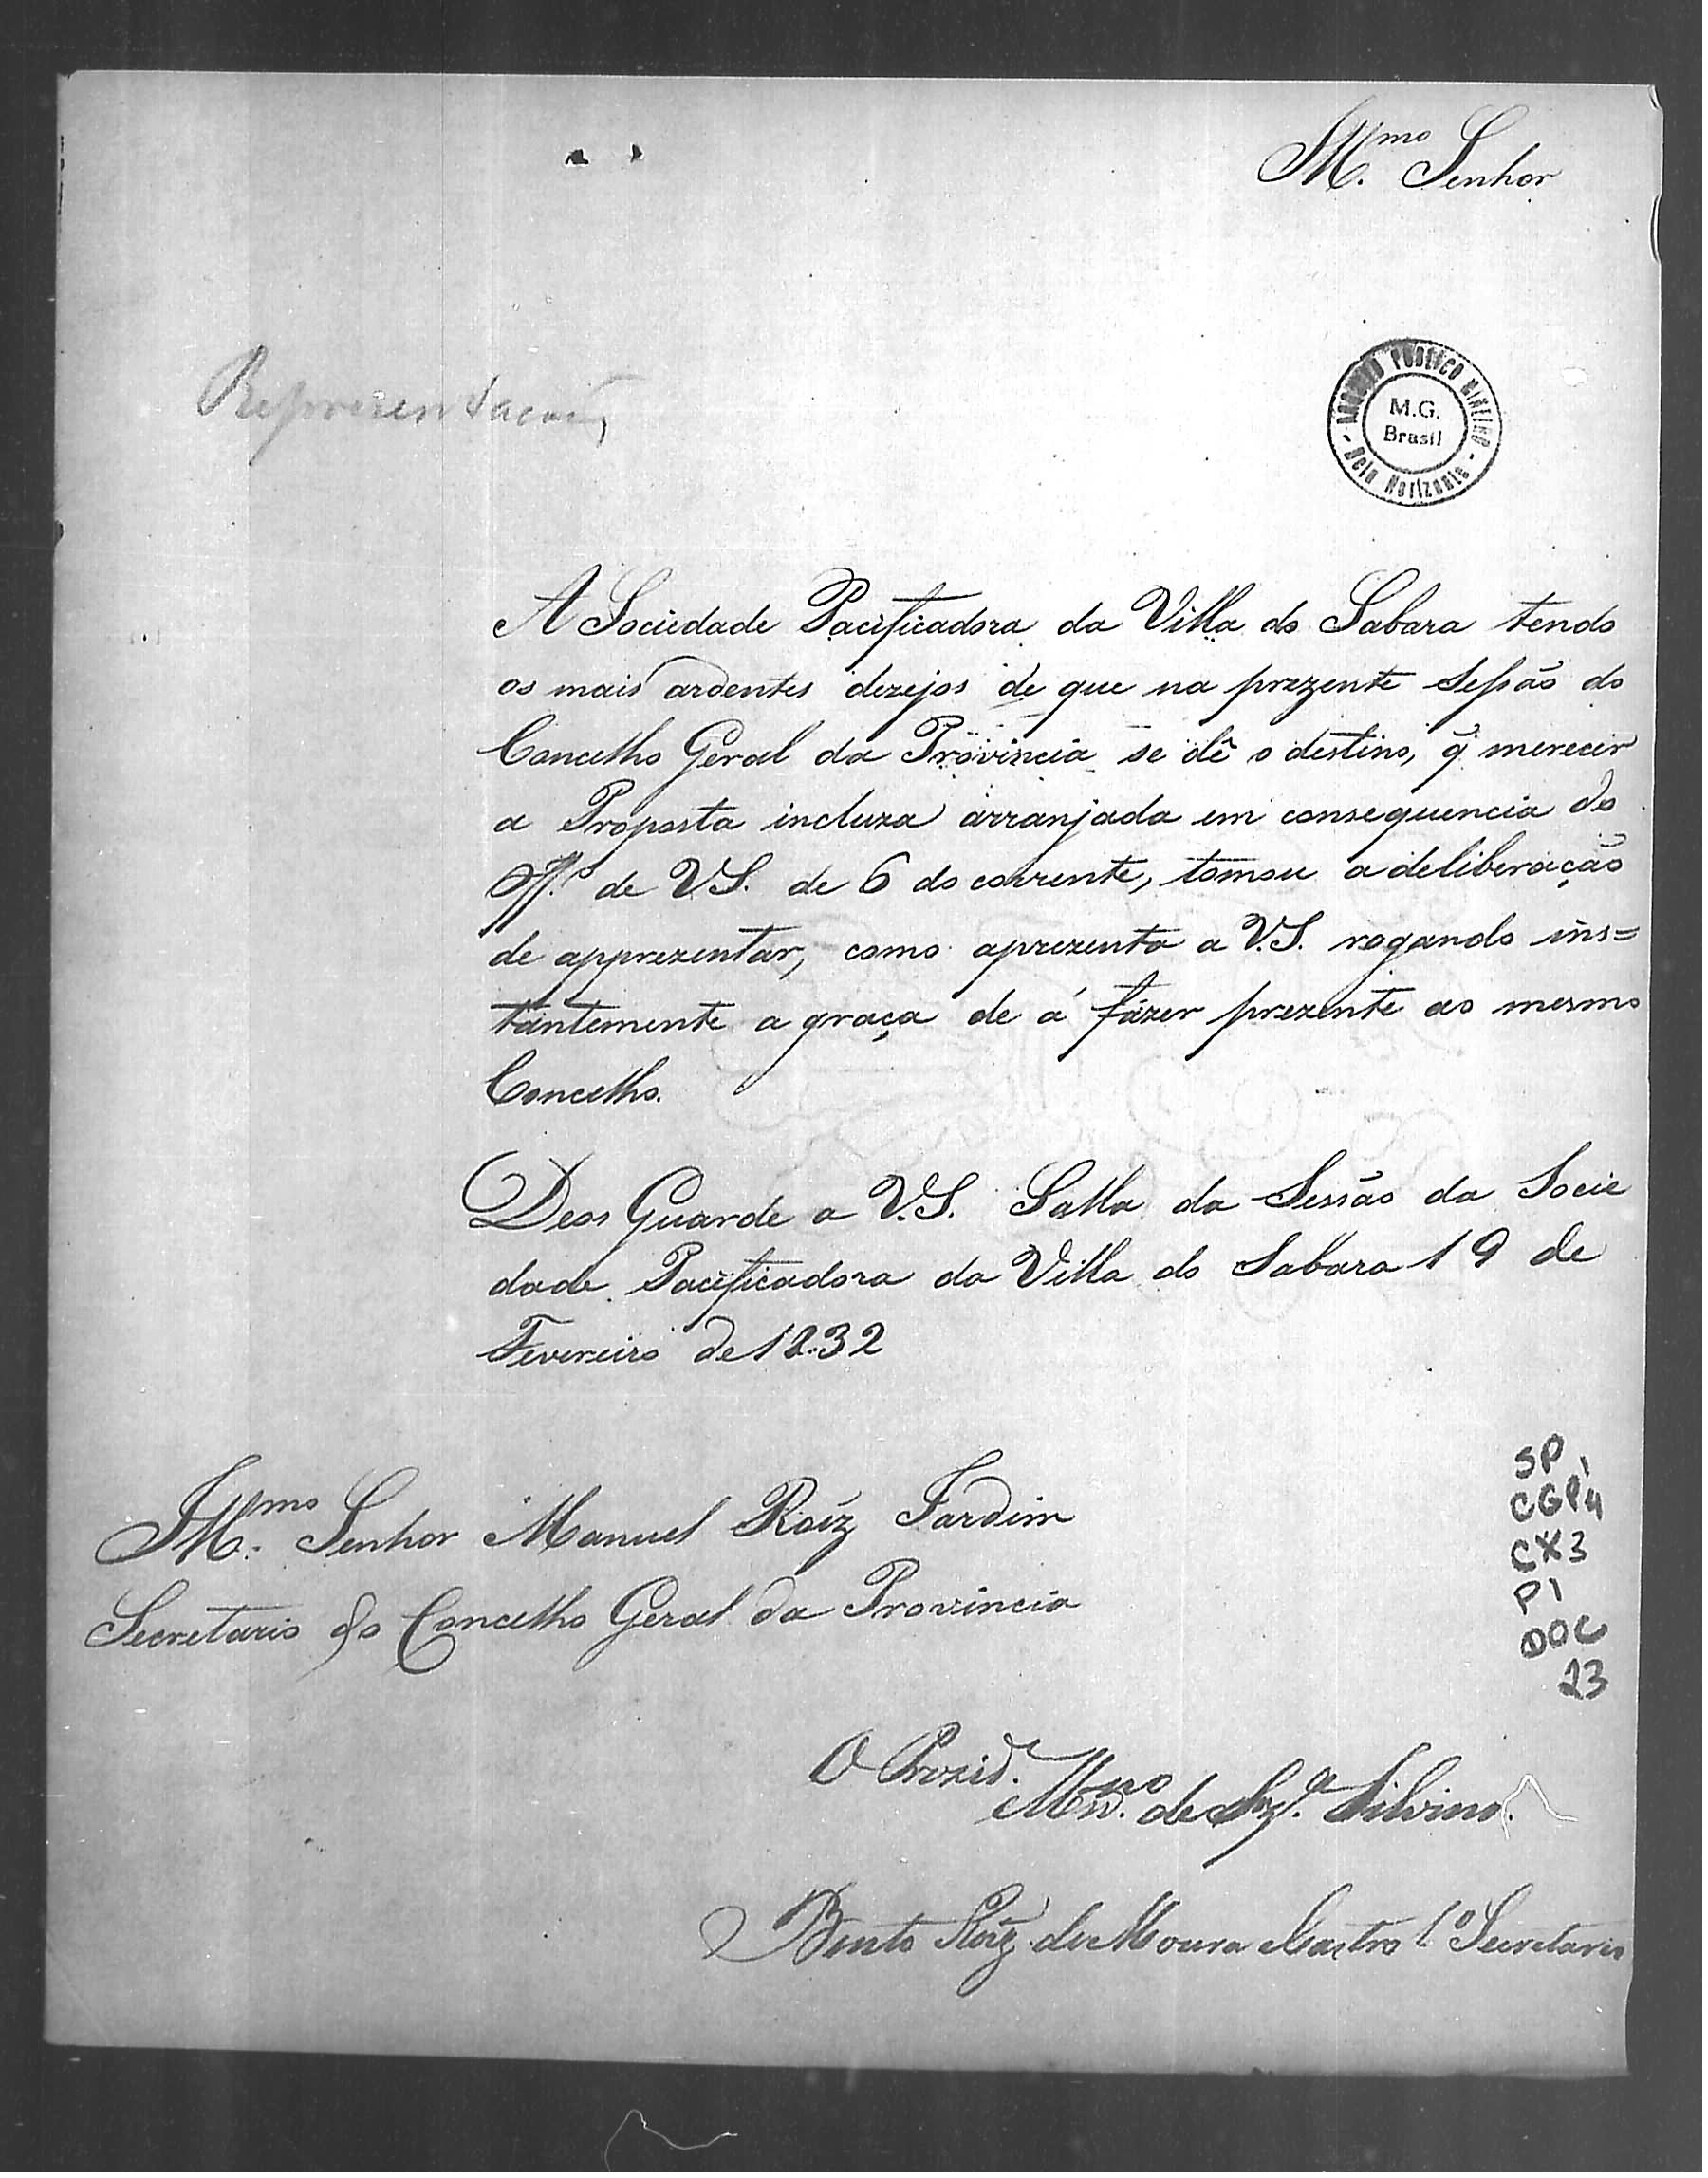 Ill.mo Senhor
Reprezentação
ARQUIVO PUBLICO MINEIRO
M.G.
Brasil
- Belo Horizonte -
A Sociedade Pacificadora da Villa do Sabara tendo
os mais ardentes dezejos de que na prezente Sessão do
Concelho Geral da Provincia se dê o destino, q̃ merecer
a Proposta incluza arranjada em consequencia do
Off.º de V.S. de 6 do corrente, tomou a deliberação
de apprezentar, como aprezenta a V.S. rogando ins=
tantemente a graça de á fazer prezente ao mesmo
Concelho.
Deos Guarde a V.S. Salla da Sessão da Socie
dade Pacificadora da Villa do Sabara 19 de
Fevereiro de 1832
Ill.mo Senhor Manuel Roiz Jardim
Secretario do Concelho Geral da Provincia
SP
CGP4
CX3
P1
DOC
23
O Prezid.e
de Sz.ª Silvino.
Bento Roiz de Moura Castro 1º Secretario